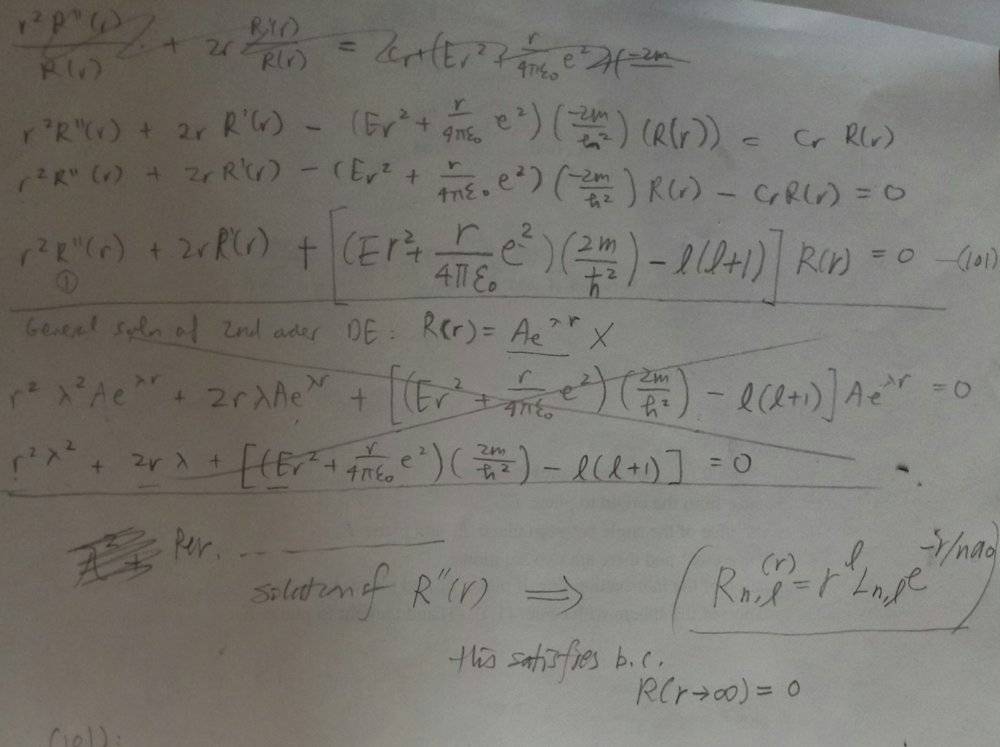 r²R''(r)/R(r) + 2r R'(r)/R(r) = Cr + (Er² + r/4πε₀ e²) (-2m
r²R''(r) + 2r R'(r) - (Er² + r/4πε₀ e²)(-2m/ħ²)(R(r)) = Cr R(r)
r²R''(r) + 2r R'(r) - (Er² + r/4πε₀ e²)(-2m/ħ²) R(r) - Cr R(r) = 0
r²R''(r) + 2r R'(r) + [(Er² + r/4πε₀ e²)(2m/ħ²) - l(l+1)] R(r) = 0 —(101)
①
General soln of 2nd order DE: R(r) = Ae^λr X
r²λ²Ae^λr + 2rλAe^λr + [(Er² + r/4πε₀ e²)(2m/ħ²) - l(l+1)] Ae^λr = 0
r²λ² + 2rλ + [(Er² + r/4πε₀ e²)(2m/ħ²) - l(l+1)] = 0
Per.
solution of R''(r) ⟹ (R_n,l(r) = r^l L_n,l e^-r/na₀)
this satisfies b.c.
R(r→∞) = 0
(101):